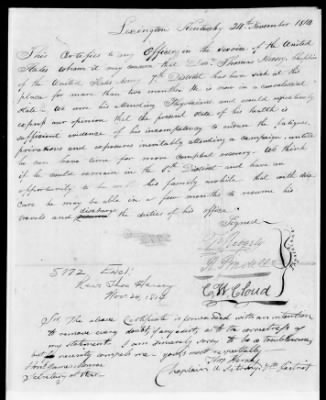 Lexington Kentucky 24th November 1814
This Certifies to any Officer in the Service of the United
States whom it may concern that Revd Thomas Hersey, Chaplin
of the United States Army 7th District has been sick at this
place for more than two months. He is now in a convalescent
State - We were his Attending Physicians and would confidently
express our opinion that the present state of his health is
sufficient evidence of his incompetency to endure the fatigue
privations and exposures inevitably attending a campaign, until
he can have time for more complete recovery. We think
if he could remain in the 8th District and have an
opportunity to be with his family awhile that with due
care he may be able in a few months to resume his
travels and discharge the duties of his office.
Signed
C W Cloud
5172 Encl.
Revd Thos Hersey
Nov 24, 1814
Sir, The above Certificate is forwarded with an intention
to remove every doubt, if any exists, as to the correctness of
my statement. I am sincerely sorry to be troublesome,
but necessity compels me yours most respectfully
Honl James Monroe Thos Hersey
Secretary of War Chaplain U States Army 7th District